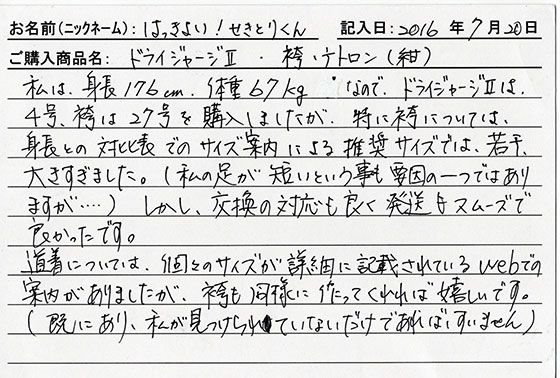 お名前(ニックネーム): はっきよい!せきとりくん 記入日: 2016 年 7月 20日
ご購入商品名: ドライジャージⅡ ・ 袴・テトロン(紺)
私は、身長176cm、体重67kg なので、ドライジャージⅡは、
4号、袴は27号を購入しましたが、特に袴については、
身長との対比表でのサイズ案内による推奨サイズでは、若干、
大きすぎました。(私の足が短いという事も要因の一つではあり
ますが‥‥) しかし、交換の対応も良く発送もスムーズで
良かったです。
道着については、個々のサイズが詳細に記載されているwebでの
案内がありましたが、袴も同様に作ってくれれば嬉しいです。
(既にあり、私が見つけられていないだけであればすいません)